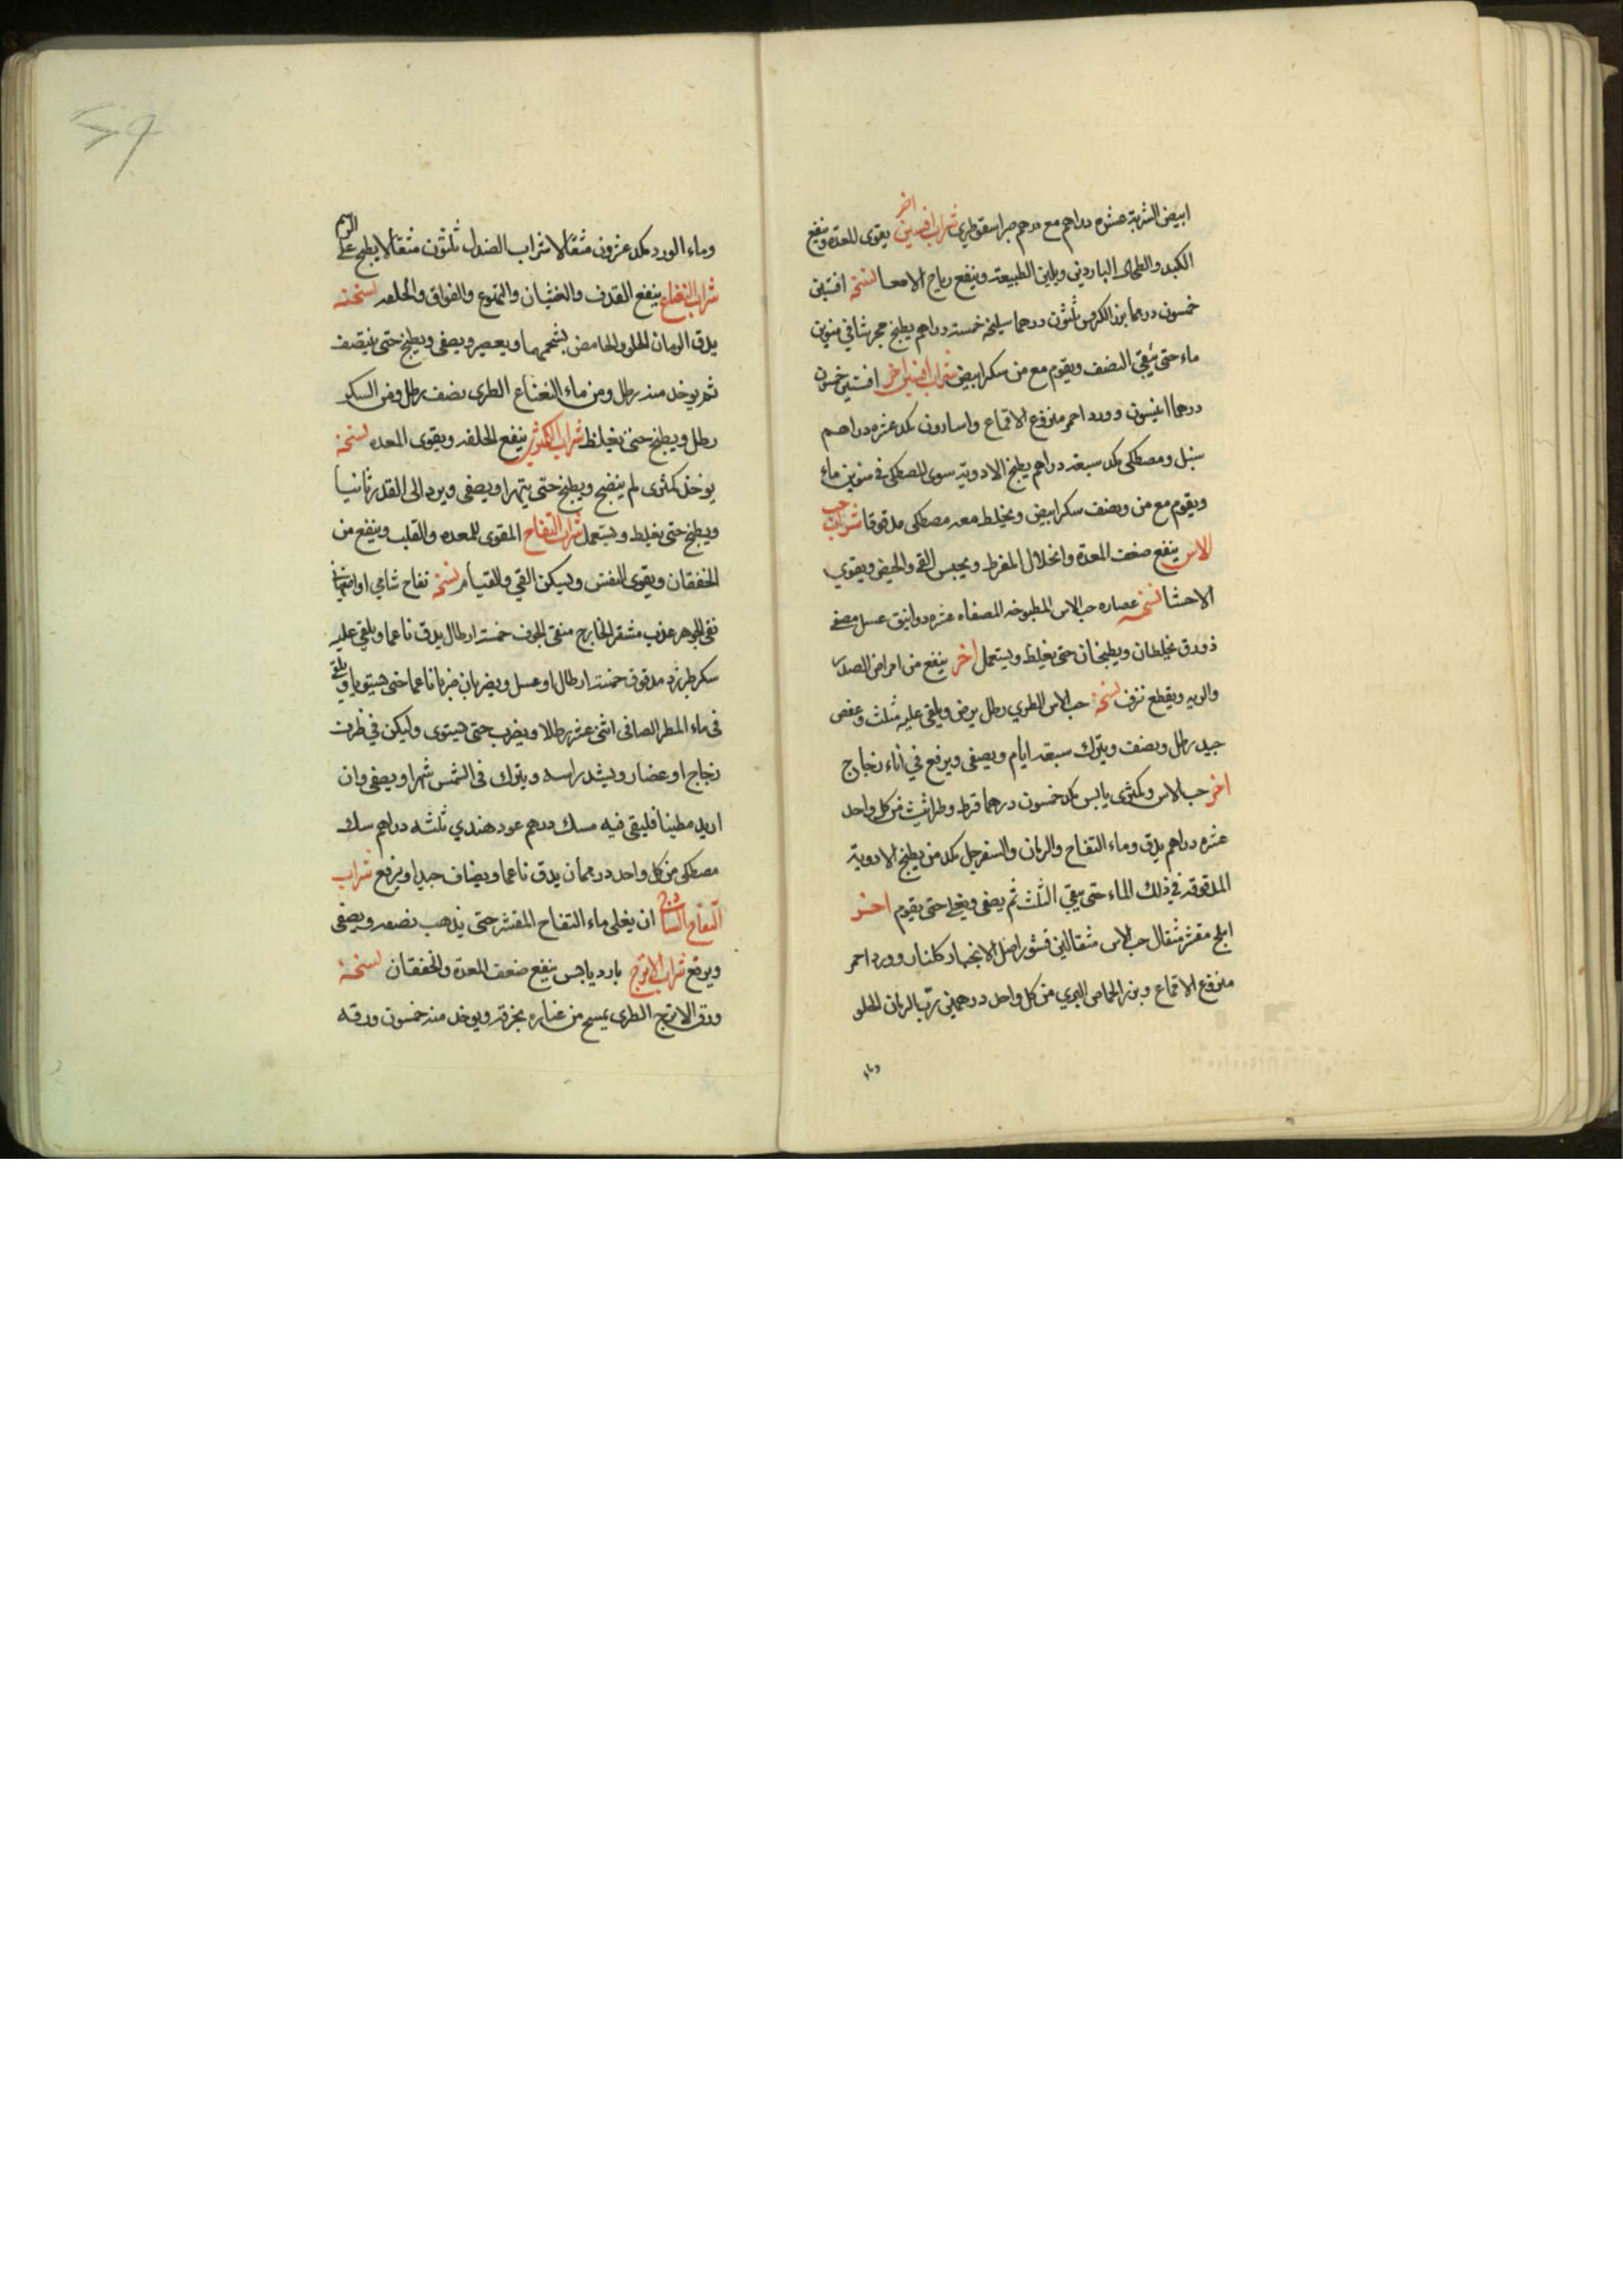 ابيض الشربة عشره دراهم مع درهم صبر اسقوطري شراب افسنتين اخر يقوى المعدة وينفع
الكبد والطحال الباردين ويلين الطبيعة وينفع رياح الامعا نسخة افسنتين
خمسون درهما بزر الكرفس ثلثون درهما سليخه خمسة دراهم يطبخ مجرشا في منوين
ماء حتى يبقى النصف ويقوم مع من سكر ابيض شراب افسنتين اخر افسنتين خمسون
درهما انيسون وورد احمر منزوع الاقماع واسارون مكد عشره دراهم
سنبل ومصطكى مكد سبعة دراهم يطبخ الادوية سوى المصطكى في منوين ماء
ويقوم مع من ونصف سكر ابيض ويخلط معه مصطكى مدقوقا شراب حب
الاس ينفع ضعف المعدة وانحلال المفرط ويحبس القئ والحيض ويقوي
الاحشا نسخه عصاره حب الاس المطبوخه المصفاه عشره دوانيق عسل مصفى
ذورق يخلطان ويطبخان حتى يغلظ ويستعمل اخر ينفع من امراض الصدر
والريه ويقطع نزف نسخة حب الاس الطري رطل يرض ويلقى عليه مثلث وعفص
جيد رطل ونصف ويترك سبعة ايام ويصفى ويرفع في اناء زجاج
اخر حب الاس وكمثرى يابس مكد خمسون درهما قرط وطراثيث من كل واحد
عشره دراهم يدق وماء التفاح والرمان والسفرجل مكد من يطبخ الادوية
المدقوقه في ذلك الماء حتى يبقى الثلث ثم يصفى ويغلى حتى يقوم اخر
املج مقشر مثقال حب الاس مثقالين قشور اصل الانجبار كلنار وورد احمر
منزوع الاقماع وبزر الحماض البري من كل واحد درهمين رب الرمان الحلو
وماء
وماء الورد مكد عشرون مثقالا شراب الصندل ثلثون مثقالا يطبخ على الرسم
شراب النعناع ينفع القذف والغثيان والتهوع والفواق والخلفه نسخته
يدق الرمان الحلو والحامض بشحمهما ويعصر ويصفى ويطبخ حتى ينتصف
ثم يوخذ منه رطل ومن ماء النعناع الطرى نصف رطل ومن السكر
رطل ويطبخ حتى يغلظ شراب الكمثرى ينفع الخلفه ويقوى المعده نسخة
يوخذ كمثرى لم ينضج ويطبخ حتى يتهرا ويصفى ويرد الى القدر ثانيا
ويطبخ حتى يغلظ ويستعمل شراب التفاح المقوى للمعده والقلب وينفع من
الخفقان ويقوى النفس ويسكن القي والقيام نسخة تفاح شامي او اصفهاني
نقى الجوهر عذب مشقر الخارج منقى الجوف خمسة ارطال يدق ناعما ويلقى عليه
سكر طبرزد مدقوق خمسة ارطال او عسل ويضربان ضربا ناعما حتى يستويا ويلقى
فى ماء المطر الصافى اثنى عشر رطلا ويضرب حتى يستوى وليكن في ظرف
زجاج او غضار ويشد راسه ويترك فى الشمس شهرا ويصفى وان
اريد مطيبا فليقى فيه مسك درهم عود هندي ثلثه دراهم سك
مصطكى من كل واحد درهمان يدق ناعما ويضاف جيدا ويرفع شراب
التفاح الساذج ان يغلى ماء التفاح المقشر حتى يذهب نصفه ويصفى
ويرفع شراب الاترج بارد يابس ينفع ضعف المعدة والخفقان نسخة
ورق الاترج الطرى يمسح من غباره بخرقه ويوخذ منه خمسون ورقه